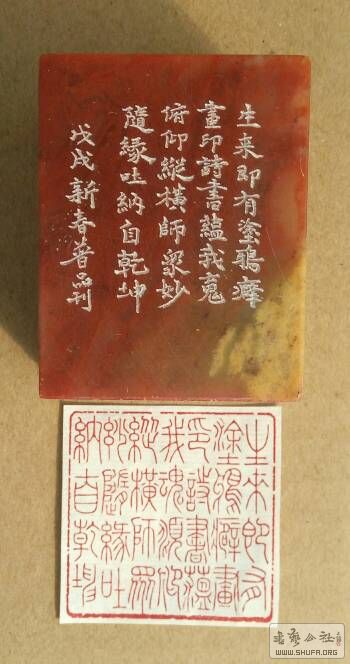 生来即有塗鴉癖
畫印詩書蘊我魂
俯仰縱橫師衆妙
隨緣吐納自乾坤
戊戌新春普品刊
生来即有
塗鴉癖畫
印詩書蘊
我魂俯仰
縱橫師眾
妙隨緣吐
納自乾坤
书艺公社
WWW.SHUFA.ORG